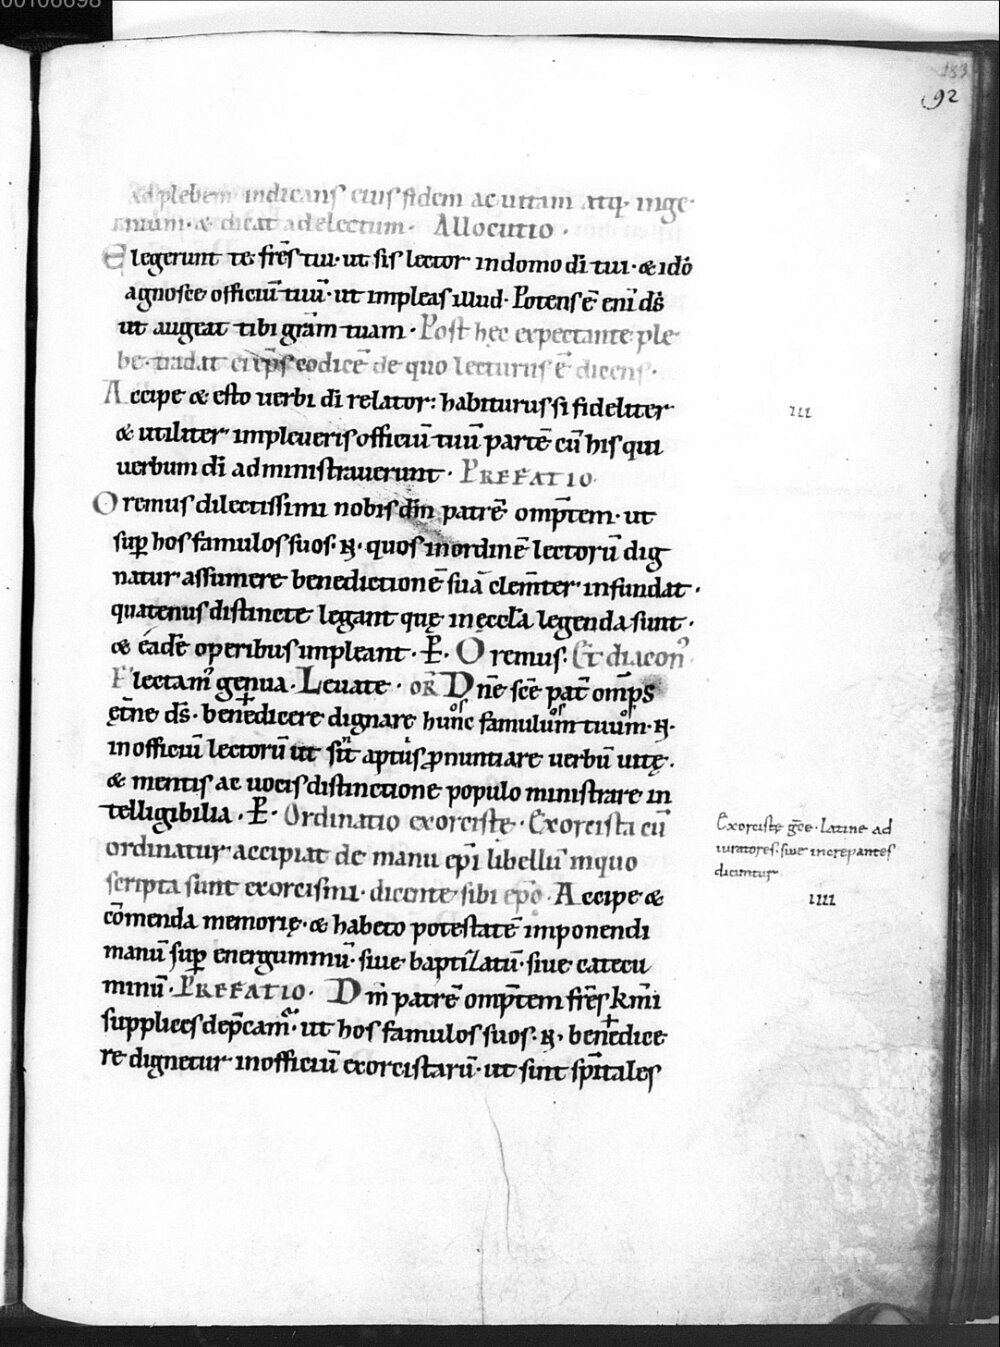 00106698
183
92
ad plebem indicans eius fidem ac uitam atq; inge
nium · & dicat ad electum · Allocutio ·
Elegerunt te fr̄es tui · ut sis lector in domo dī tui · & idō
agnosce officiū tuū · ut impleas illud · Potens ē enī ds̄
ut augeat tibi gr̄am tuam · Post hęc expectante ple
be · tradat ei ep̄s codicē de quo lecturus ē dicens ·
Accipe & esto uerbi dī relator : habiturus si fideliter
& utiliter impleueris officiū tuū partē cū his qui
uerbum dī administrauerunt · PREFATIO ·
Oremus dilectissimi nobis dm̄ patrē omp̄tem · ut
sup̄ hos famulos suos · N · quos in ordinē lectorū dig
natur assumere benedictionē suā clem̄ter infundat ·
quatenus distincte legant quę in ęccl̄a legenda sunt ·
& eadē operibus impleant · P̄ · Oremus · Et diacon᷒
Flectam᷒ genua · Leuate · OR̄ Dn̄e sc̄e pat̄ omp̄s
ęt̄ne ds̄ · bene+dicere dignare hunc os famulum os tuum os · N ·
in officiū lectorū ut sīt aptus i p̄nuntiare uerbū uitę ·
& mentis ac uocis distinctione populo ministrare in
telligibilia · P̄ · Ordinatio exorcistę · Exorcista cū
ordinatur accipiat de manu ep̄i libellū in quo
scripta sunt exorcismi · dicente sibi ep̄o · Accipe &
cōmenda memorię · & habeto potestatē imponendi
manū sup̄ energuminū · siue baptizatū · siue catecu
minū · PREFATIO · Dm̄ patrē omp̄tem fr̄es km̄i
supplices dep̄cam᷒ · ut hos famulos suos · N · bene+dice
re dignetur in officiū exorcistarū · ut sint sp̄itales
III
Exorcistę gce · Latine ad
iuratores · siue increpantes
dicuntur
IIII